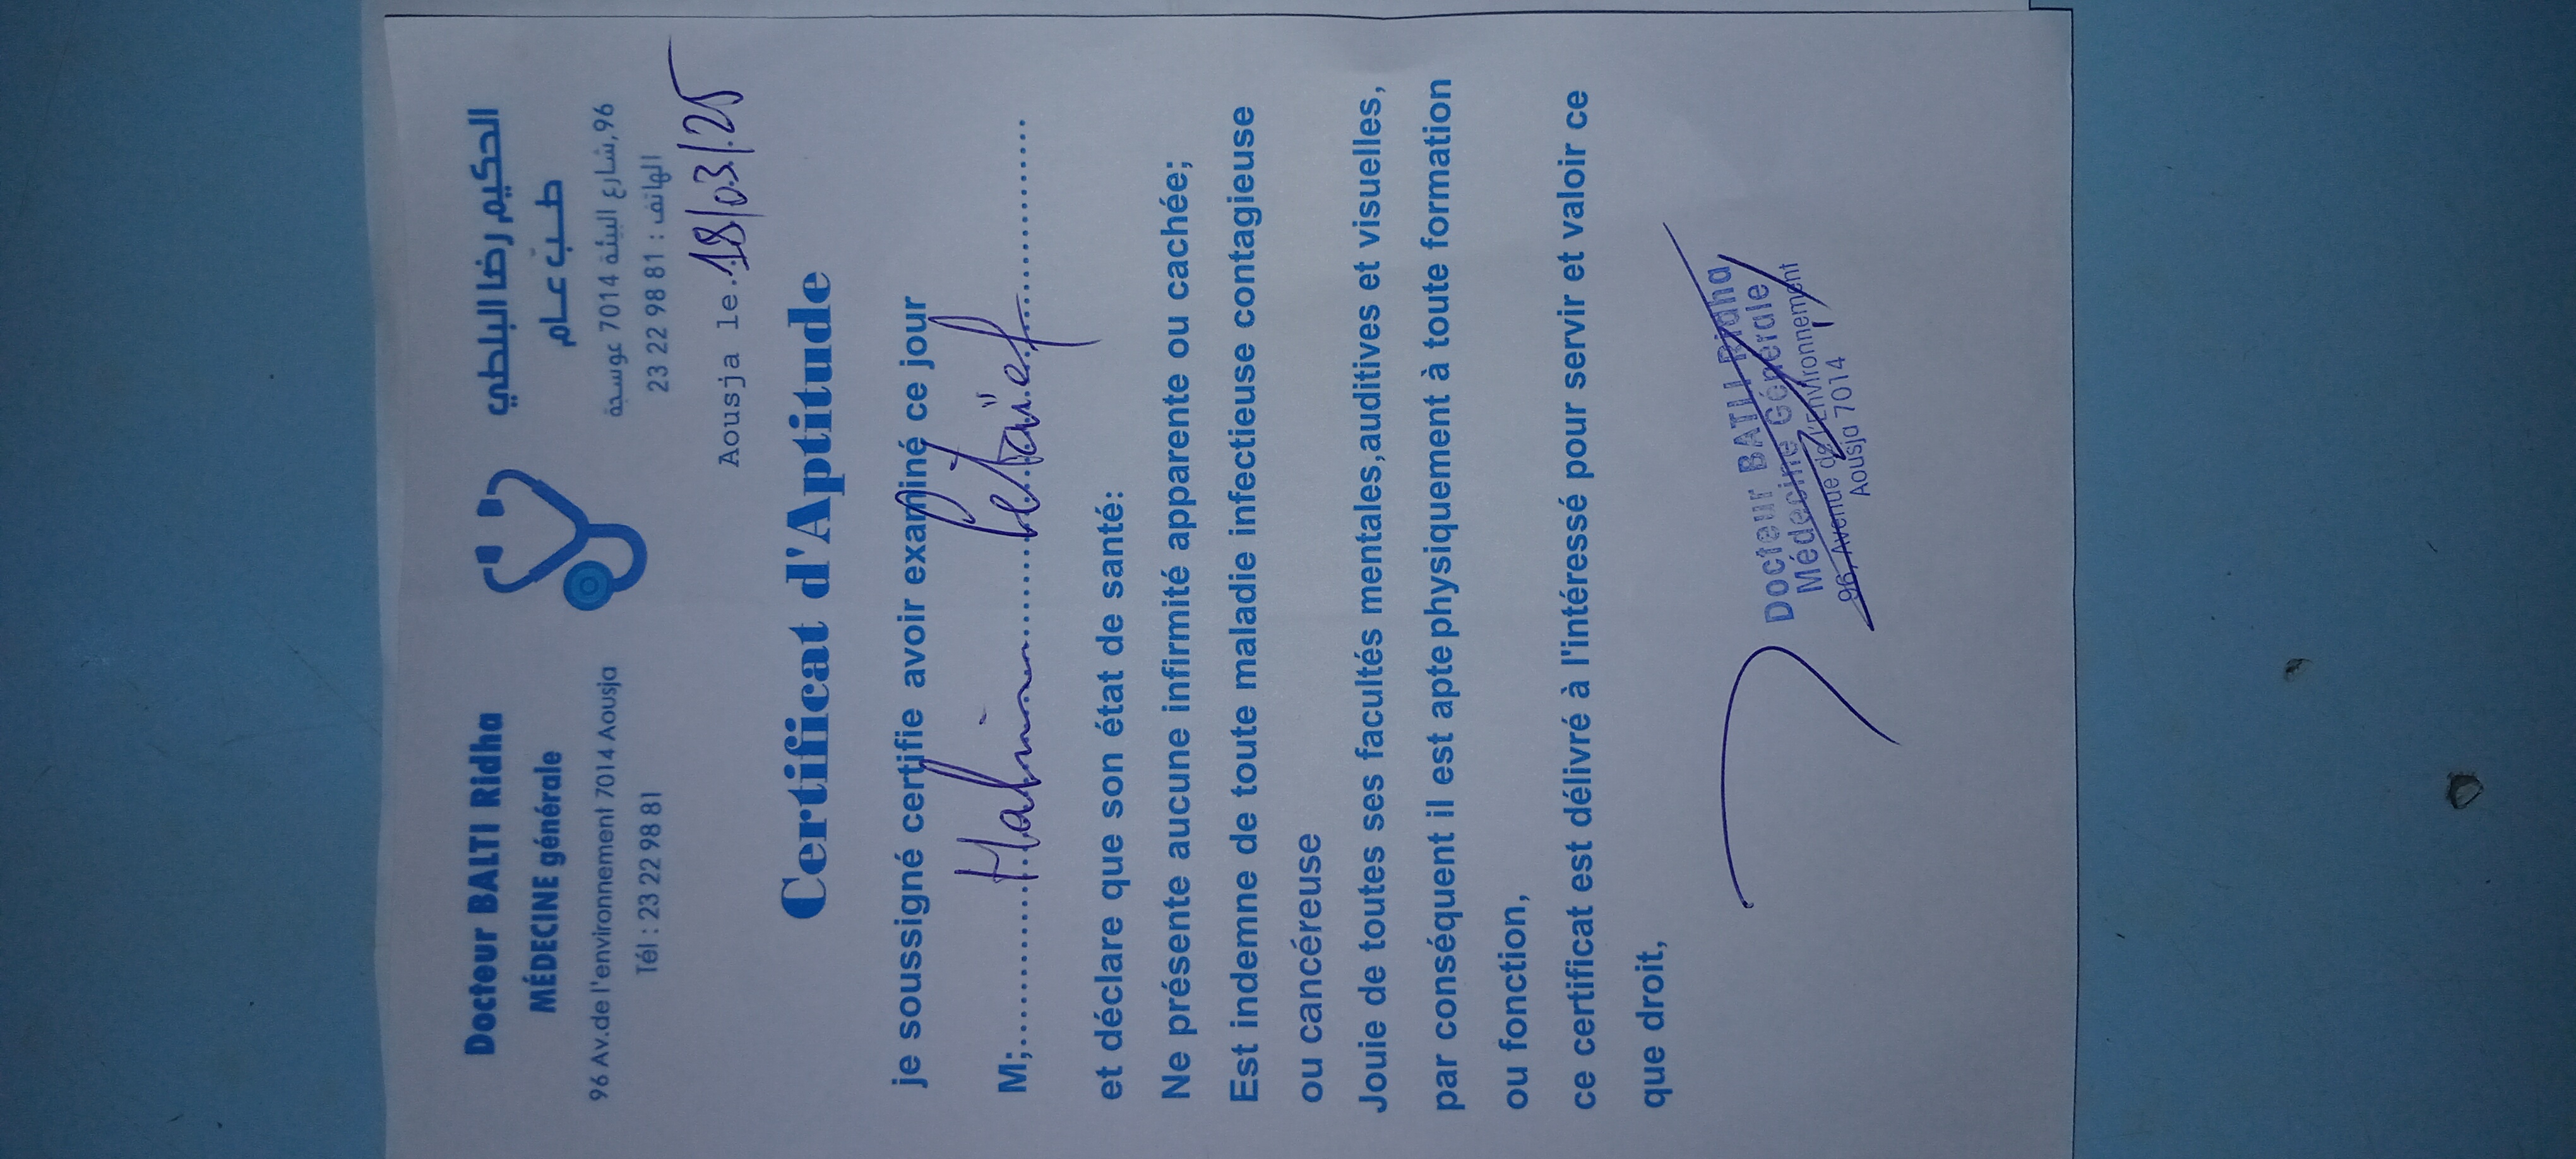 Docteur BALTI Ridha
MÉDECINE générale
96 Av.de l'environnement 7014 Aousja
Tél : 23 22 98 81
الحكيم رضا البلطي
طب عام
96,شارع البيئة 7014 عوسجة
الهاتف : 81 98 22 23
Aousja le.18/03/25
Certificat d'Aptitude
je soussigné certifie avoir examiné ce jour
M;
et déclare que son état de santé:
Ne présente aucune infirmité apparente ou cachée;
Est indemne de toute maladie infectieuse contagieuse
ou cancéreuse
Jouie de toutes ses facultés mentales,auditives et visuelles,
par conséquent il est apte physiquement à toute formation
ou fonction,
ce certificat est délivré à l'intéressé pour servir et valoir ce
que droit,
Docteur BATLI Ridha
Médecine Générale
96, Avenue de l'Environnement
Aousja 7014